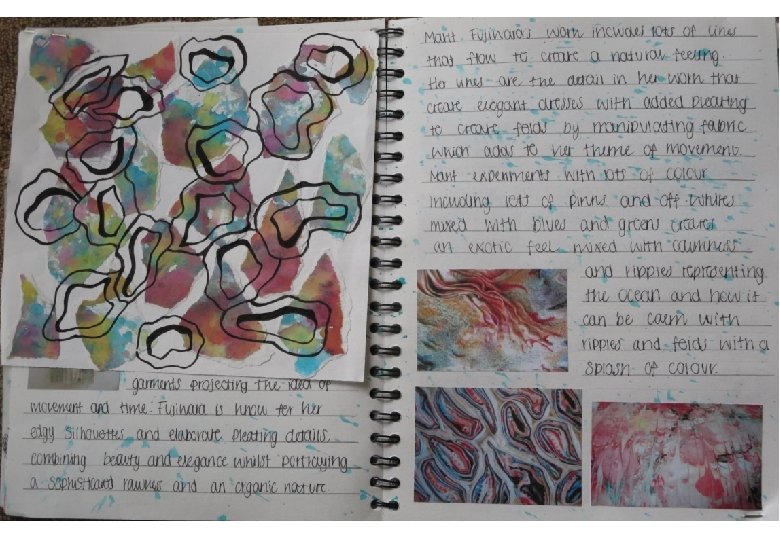 garments projecting the idea of
movement and time. Fujihara is know for her
edgy silhouettes and elaborate pleating details,
combining beauty and elegance whilst portraying
a sophisticated rawness and an organic nature.
Marit Fujihara's work includes lots of lines
that flow to create a natural feeling.
Her lines are the detail in her work that
create elegant dresses with added pleating
to create folds by manipulating fabric
which adds to her theme of movement.
Marit experiments with lots of colour
including lots of pinks and off whites
mixed with blues and greens creates
an exotic feel mixed with calmness
and ripples representing
the ocean and how it
can be calm with
ripples and folds with a
splash of colour.